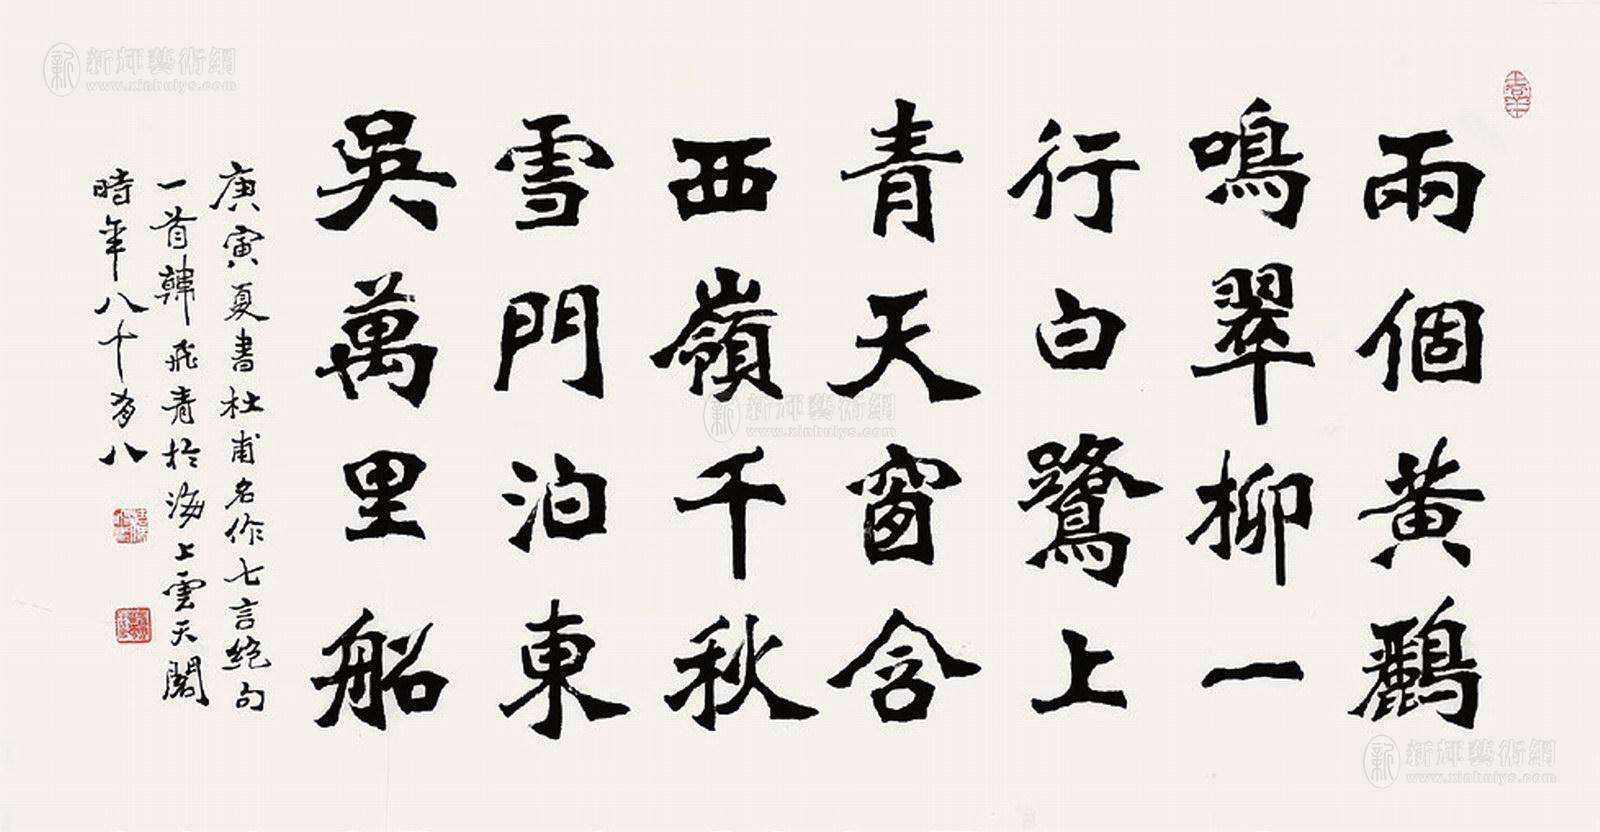 兩個黄鸝
鳴翠柳一
行白鷺上
青天窗含
西嶺千秋
雪門泊東
吳萬里船
庚寅夏書杜甫名作七言絕句
一首韓飛青於海上雲天閣
時年八十有八
新輝藝術網
www.xinhuiys.com
新輝藝術網
www.xinhuiys.com
新輝藝術網
www.xinhuiys.com